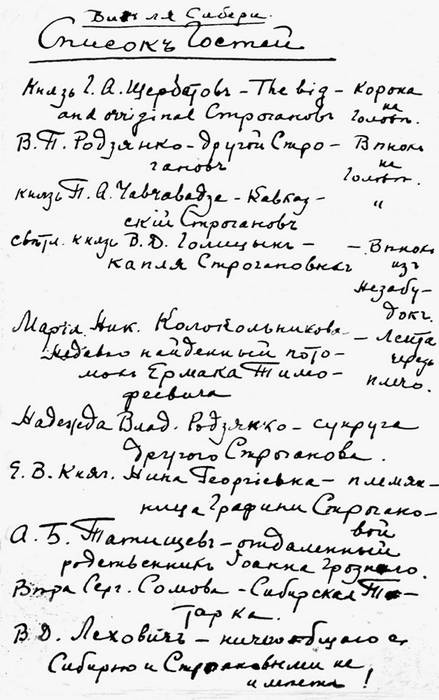 Вил ля Сибери.
Списокъ Гостей
Князь Г. А. Щербатовъ – The big – Корона
and original Строгановъ на
В. П. Родзянко – другой Стро- головѣ.
гановъ Вѣнокъ на головѣ.
князь П. А. Чавчавадзе – Кавказ- "
скій Строгановъ
свѣтл. князь В. Д. Голицынъ – – Вѣнокъ
капля Строгановыхъ изъ
незабу-
докъ.
Марія Ник. Колокольникова – Лента
Недавно найденный пото- черезъ
мокъ Ермака Тимо- плечо.
феевича
Надежда Влад. Родзянко – супруга
другого Строганова.
Е. В. Княг. Нина Георгіевна – племян-
ница Графини Строгано-
вой
А. Б. Татищевъ – отдаленный
родственникъ Іоанна Грознаго.
Вѣра Серг. Сомова – Сибирская Та-
тарка.
В. Д. Леховичъ – ничего общаго съ
Сибирью и Строгановыми не
имѣетъ!